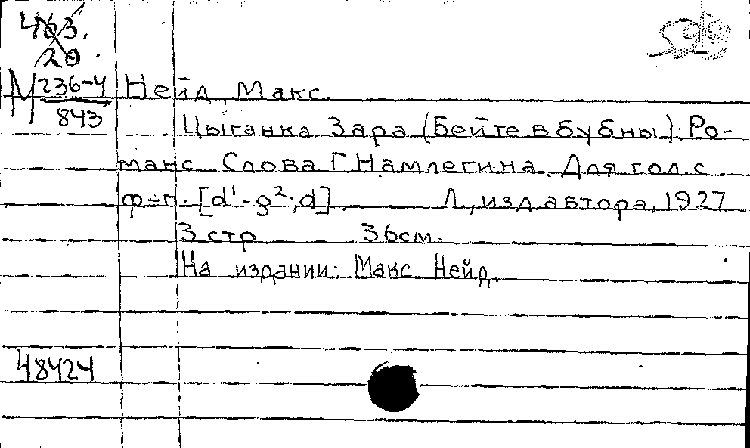 463.
20
М 236-4
843
Нейд, Макс.
Цыганка Зара (Бейте в бубны). Ро-
манс. Слова Г. Намлегина. Для гол. с
ф-п. [d¹-g²; d] Л., изд автора, 1927
3 стр 36см.
На издании: Макс Нейд.
48424